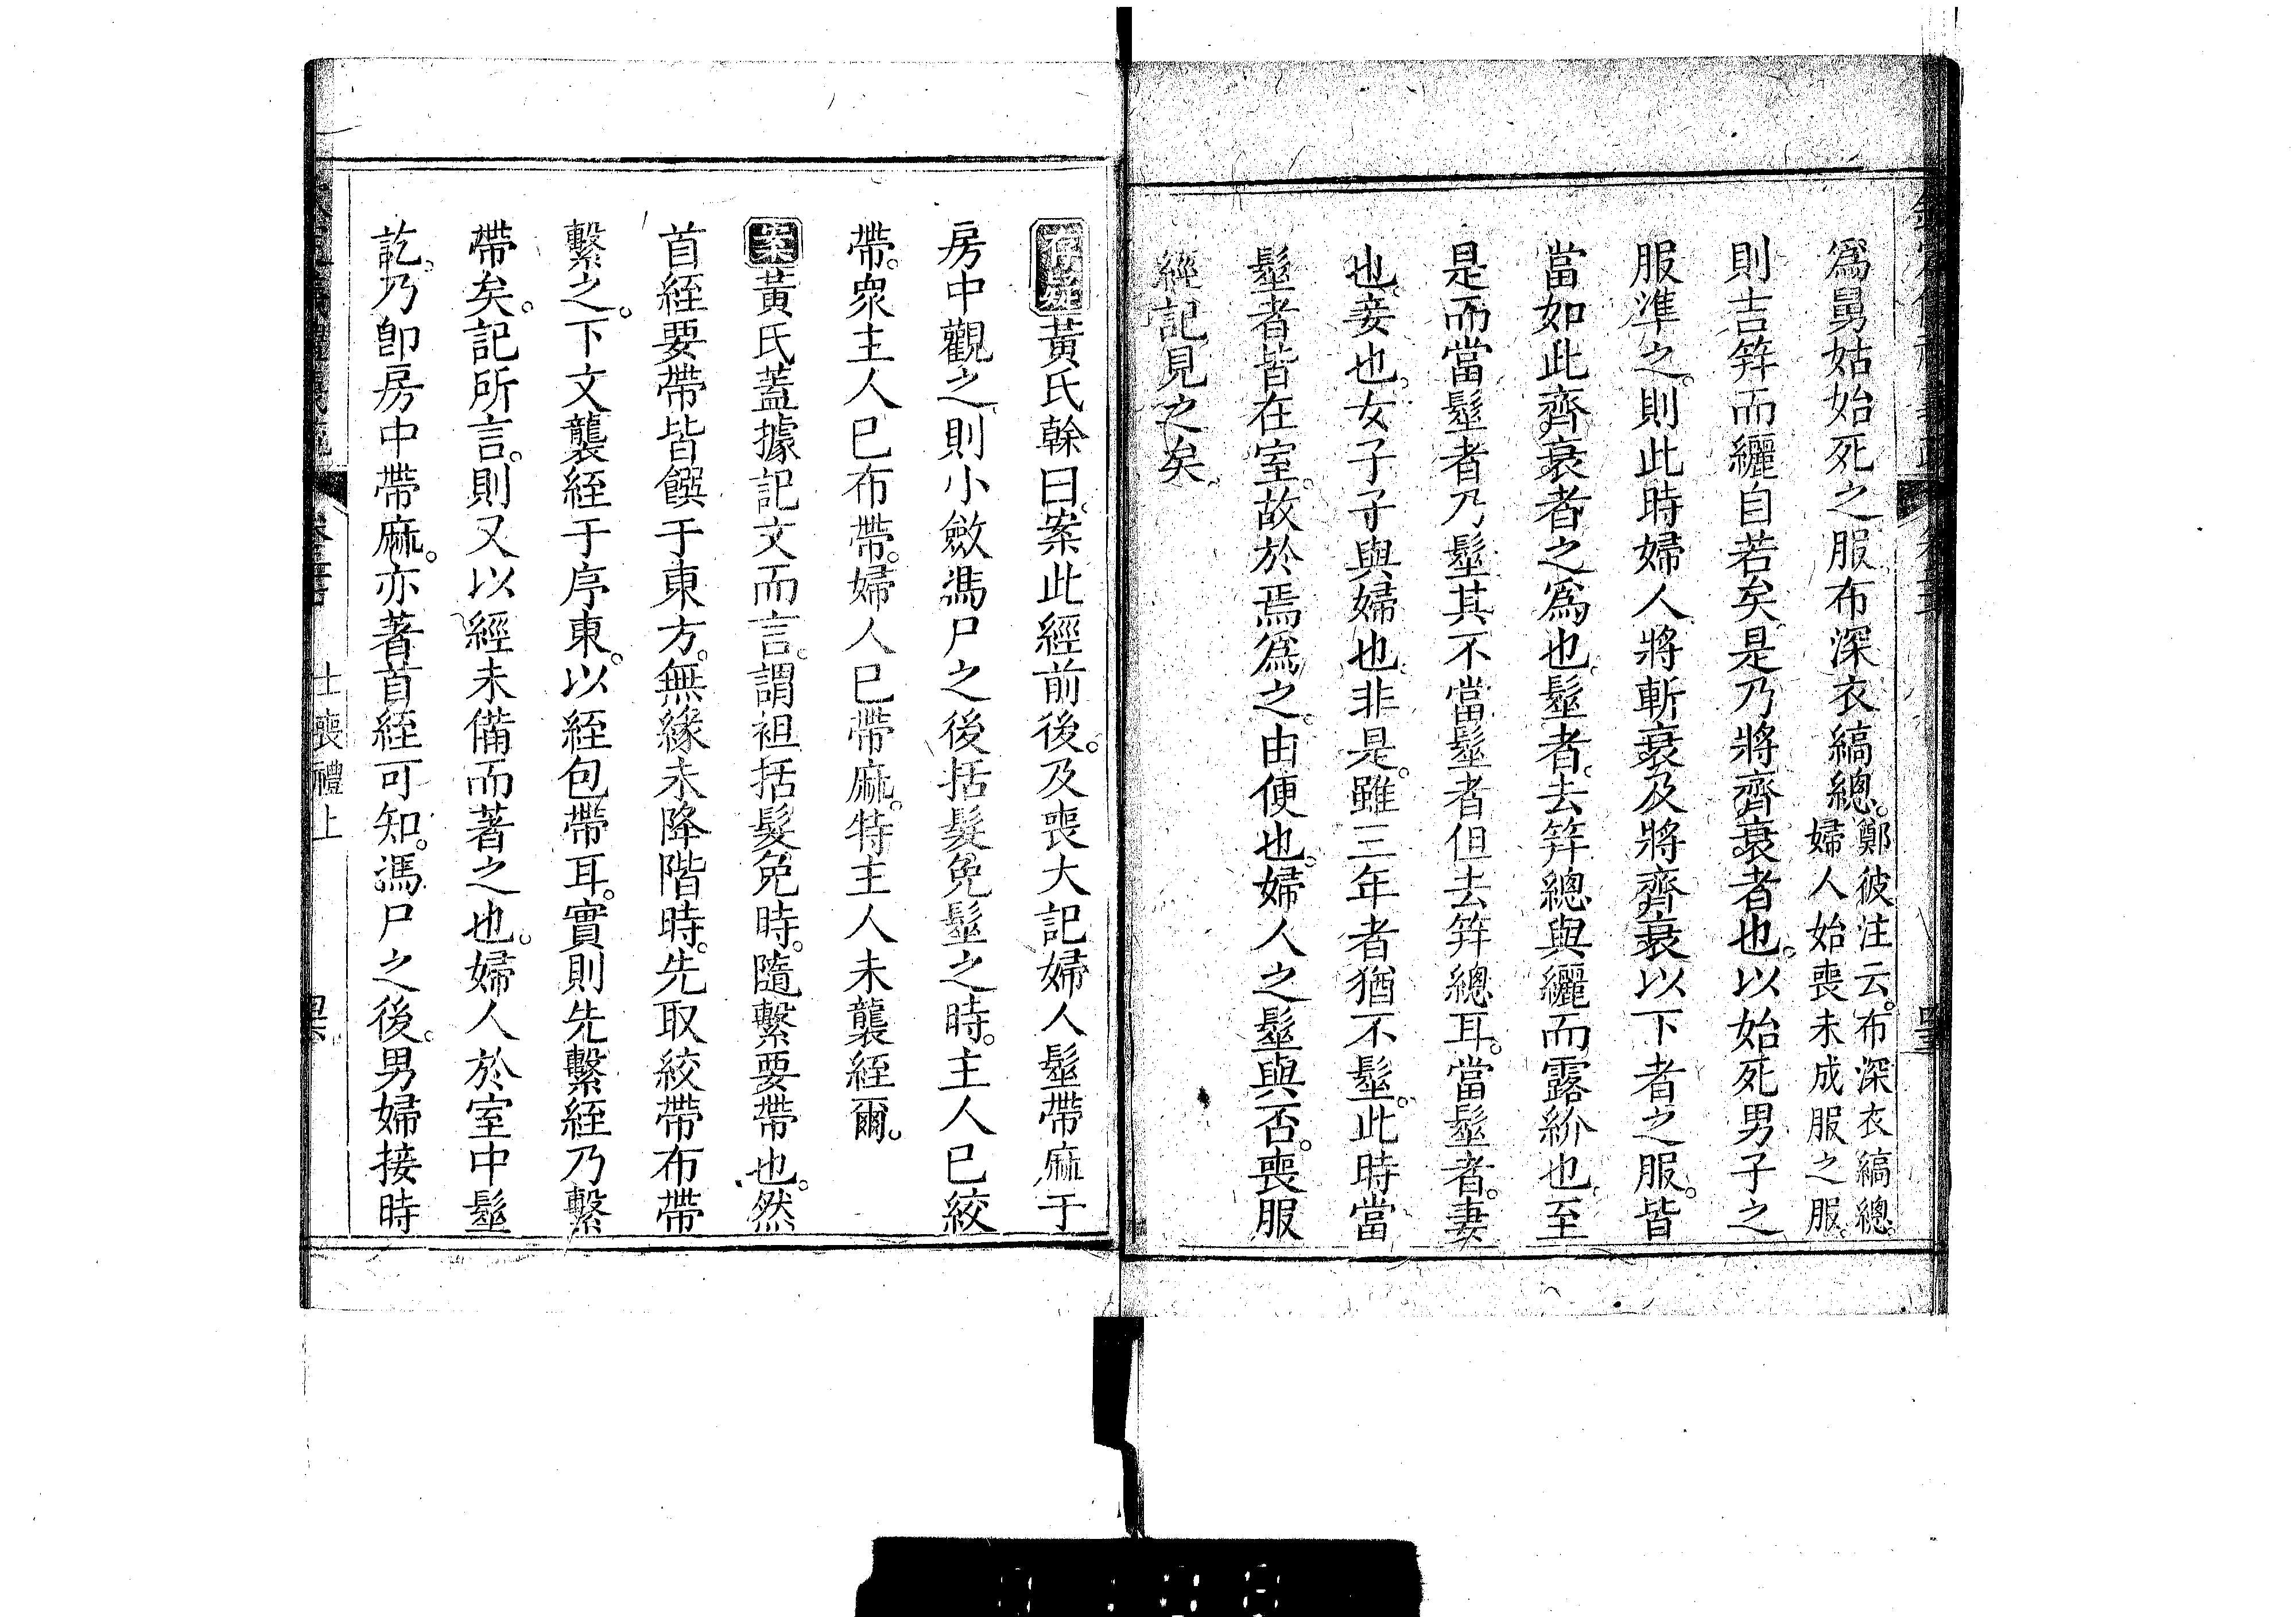 爲舅姑始死之服布深衣縞總。鄭彼注云。布深衣縞總。婦人始喪未成服之服。
則吉笄而纚自若矣。是乃將齊衰者也。以始死男子之
服準之。則此時婦人將斬衰及將齊衰以下者之服。皆
當如此齊衰者之爲也。髽者。去笄總與纚而露紒也。至
是而當髽者乃髽其不當髽者但去笄總耳。當髽者。妻
也。妾也。女子子與婦也。非是。雖三年者猶不髽。此時當
髽者皆在室。故於焉爲之。由便也。婦人之髽與否。喪服
經記見之矣。
存疑黃氏榦曰。案此經前後。及喪大記婦人髽帶麻于
房中觀之。則小斂馮尸之後括髮免髽之時。主人已絞
帶。眾主人已布帶。婦人已帶麻。特主人未襲絰爾。
案黃氏蓋據記文而言。謂袒括髮免時。隨繫要帶也。然
首絰要帶皆饌于東方。無緣未降階時。先取絞帶布帶
繫之。下文襲絰于序東。以絰包帶耳。實則先繫絰乃繫
帶矣。記所言。則又以經未備而著之也。婦人於室中髽
訖。乃卽房中帶麻。亦著首絰可知。馮尸之後。男婦接時
士喪禮上